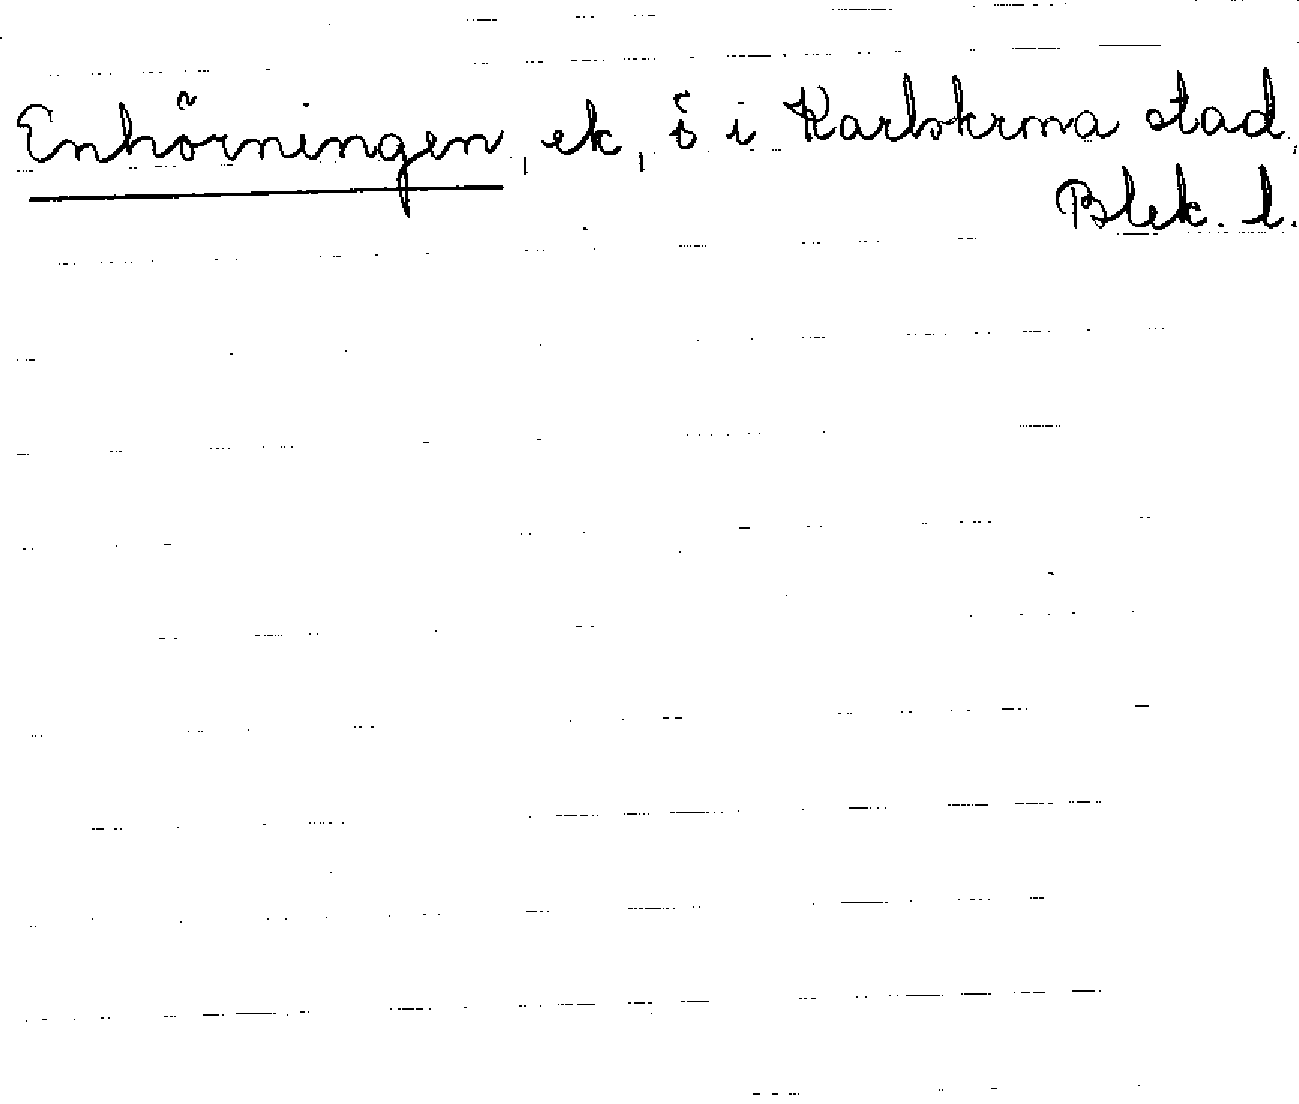 Enhörningen, ek, ö i Karlskrona stad,
Blek. l.